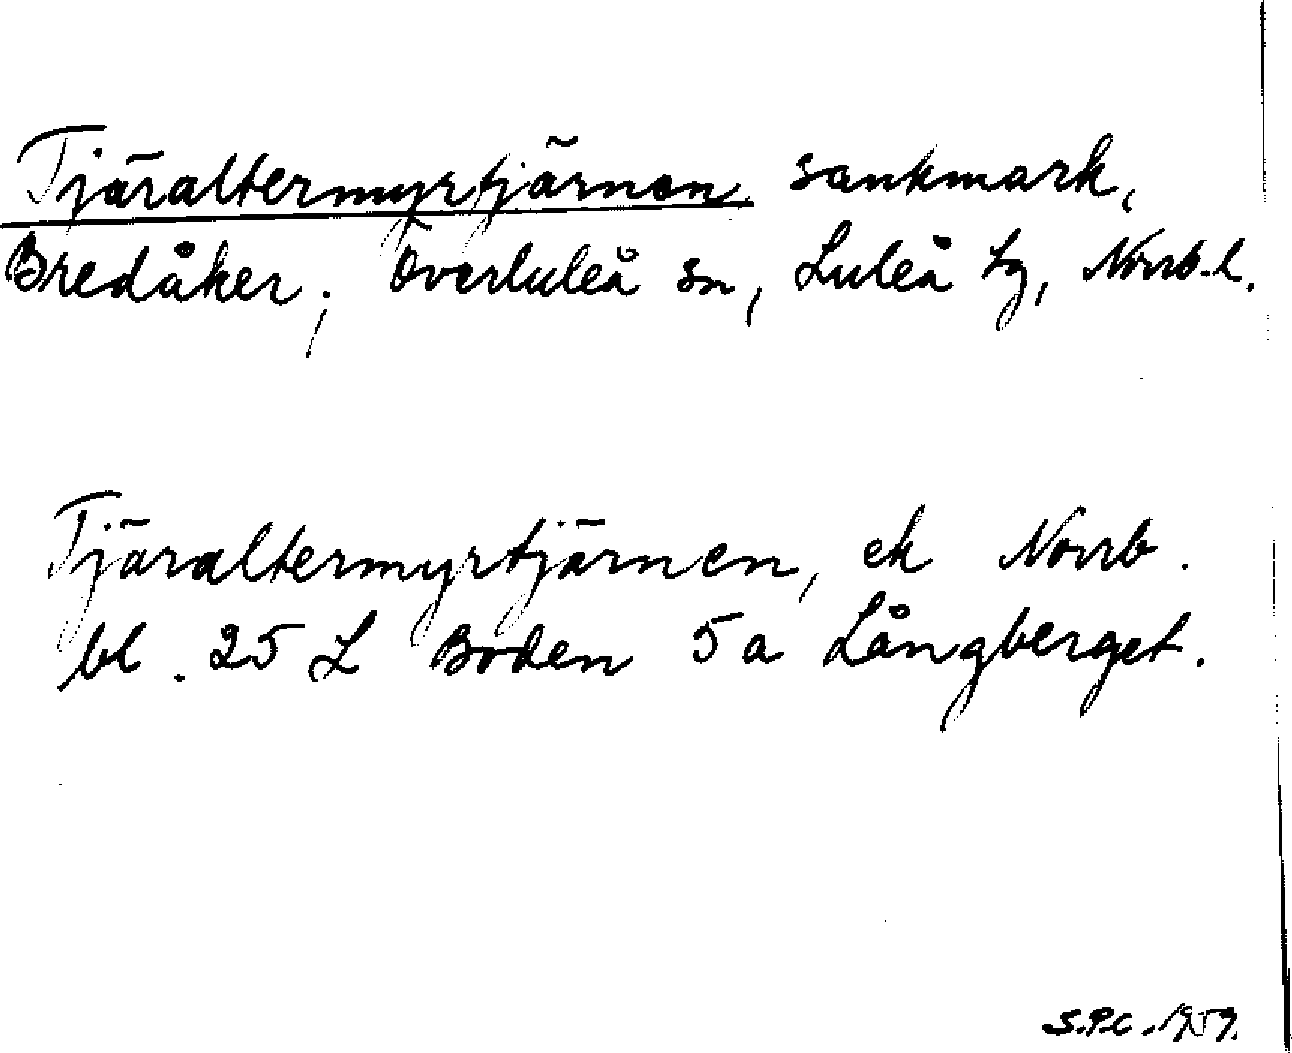 Tjäraltermyrtjärnen, sankmark,
Bredåker, Överluleå sn, Luleå tg, Norrb.l.
Tjäraltermyrtjärnen, ek Norrb.
bl. 25 L Boden 5 a Långberget.
S.P.C. 1959.